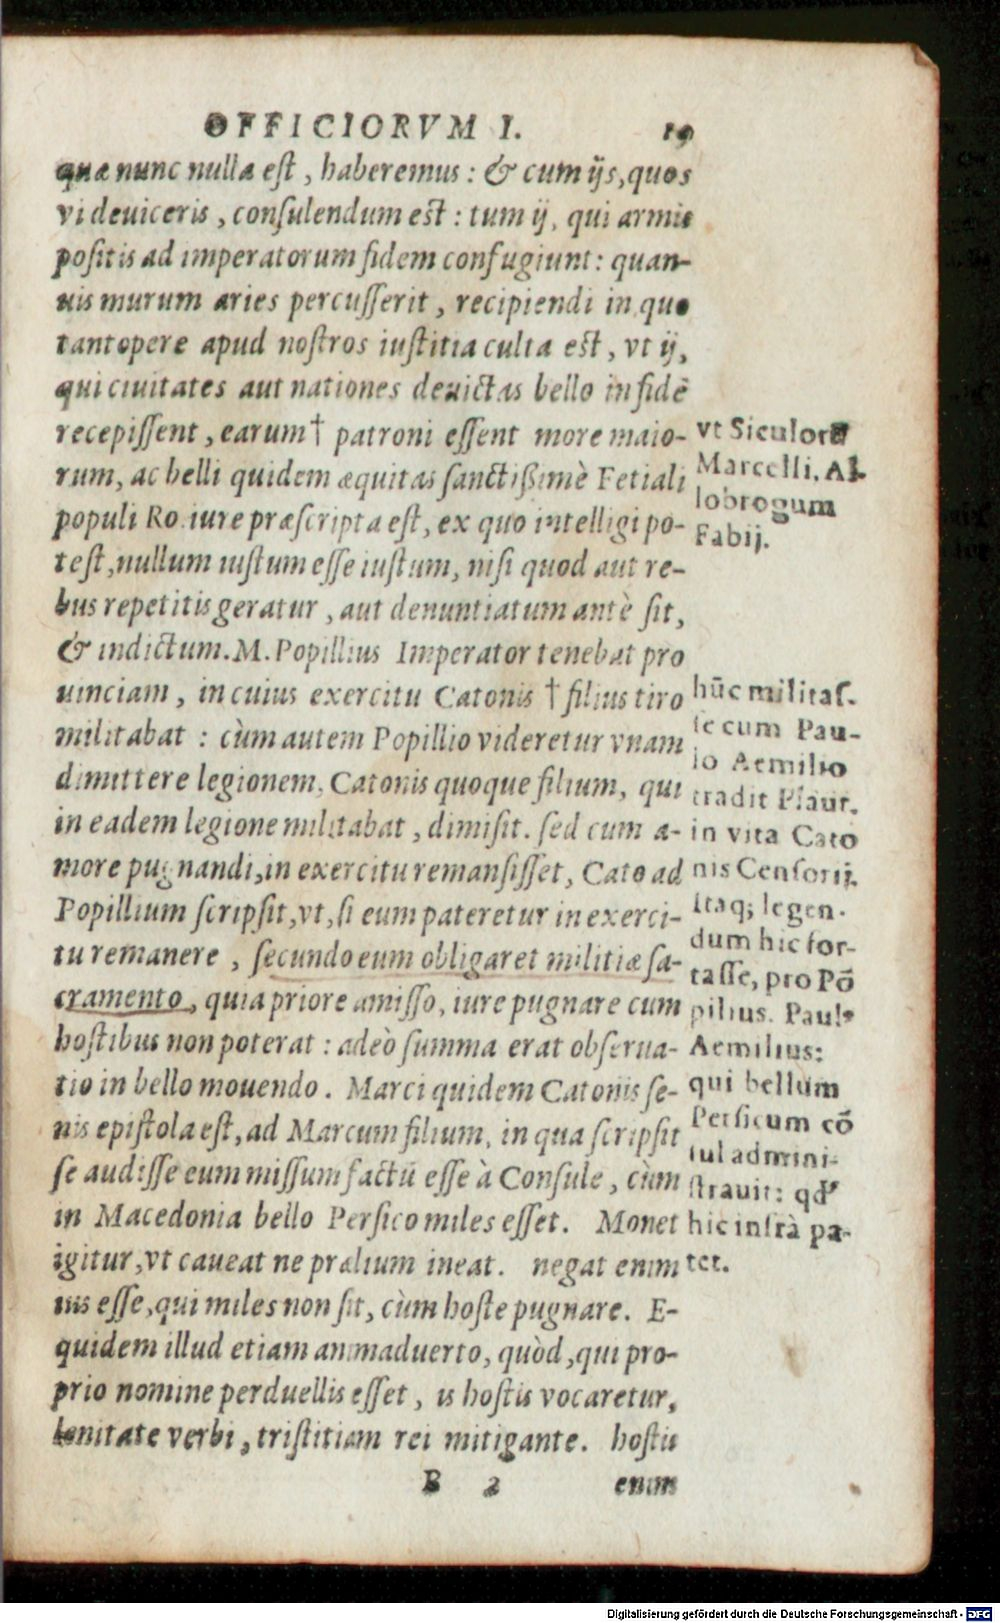 OFFICIORVM I. 19
quæ nunc nulla est, haberemus: & cum ijs, quos
vi deuiceris, consulendum est: tum ij, qui armis
positis ad imperatorum fidem confugiunt: quan-
uis murum aries percusserit, recipiendi in quo
tantopere apud nostros iustitia culta est, vt ij,
qui ciuitates aut nationes deuictas bello in fidē
recepissent, earum† patroni essent more maio-
rum, ac belli quidem æquitas sanctißimè Fetiali
populi Ro. iure præscripta est, ex quo intelligi po-
test, nullum iustum esse iustum, nisi quod aut re-
bus repetitis geratur, aut denuntiatum antè sit,
& indictum. M. Popillius Imperator tenebat pro
uinciam, in cuius exercitu Catonis † filius tiro
militabat: cùm autem Popillio videretur vnam
dimittere legionem, Catonis quoque filium, qui
in eadem legione militabat, dimisit. sed cum a-
more pugnandi, in exercitu remansisset, Cato ad
Popillium scripsit, vt, si eum pateretur in exerci-
tu remanere, secundo eum obligaret militiæ sa-
cramento, quia priore amisso, iure pugnare cum
hostibus non poterat: adeò summa erat obserua-
tio in bello mouendo. Marci quidem Catonis se-
nis epistola est, ad Marcum filium, in qua scripsit
se audisse eum missum factū esse à Consule, cùm
in Macedonia bello Persico miles esset. Monet
igitur, vt caueat ne prælium ineat. negat enim
ius esse, qui miles non sit, cùm hoste pugnare. E-
quidem illud etiam animaduerto, quòd, qui pro-
prio nomine perduellis esset, is hostis vocaretur,
lenitate verbi, tristitiam rei mitigante. hostis
B 2 enim
vt Siculorū
Marcelli, Al-
lobrogum
Fabij.
hūc militas-
se cum Pau-
lo Aemilio
tradit Plaut.
in vita Cato
nis Censorij.
Itaq; legen-
dum hic for-
tasse, pro Pō
pilius. Paulº
Aemilius:
qui bellum
Persicum cō
sul admini-
strauit: qd'
hic infrà pa-
tet.
Digitalisierung gefördert durch die Deutsche Forschungsgemeinschaft - DFG